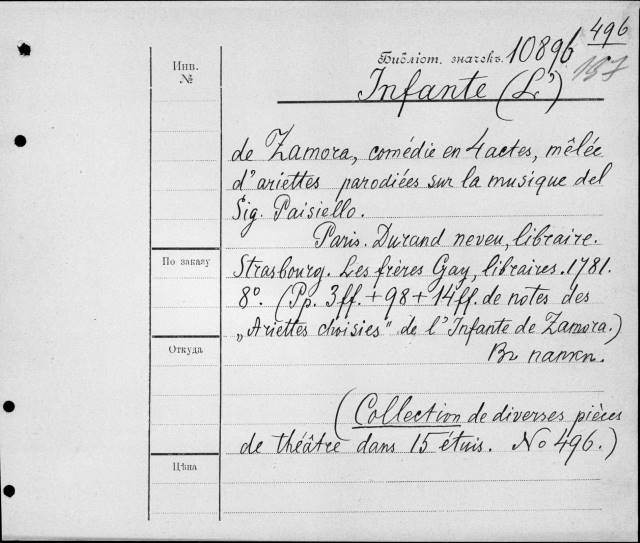 496
Библіот. значекъ. 10896
157
Инв.
№
Infante (L')
de Zamora, comédie en 4 actes, mêlée
d'ariettes parodiées sur la musique del
Sig. Paisiello.
Paris. Durand neveu, libraire.
По заказу
Strasbourg. Les frères Gay, libraires. 1781.
8º. (Pp. 3 ff. + 98 + 14 ff. de notes des
„Ariettes choisies" de l'Infante de Zamora.)
Откуда
Въ папкѣ.
(Collection de diverses pièces
de théâtre dans 15 étuis. No 496.)
Цѣна